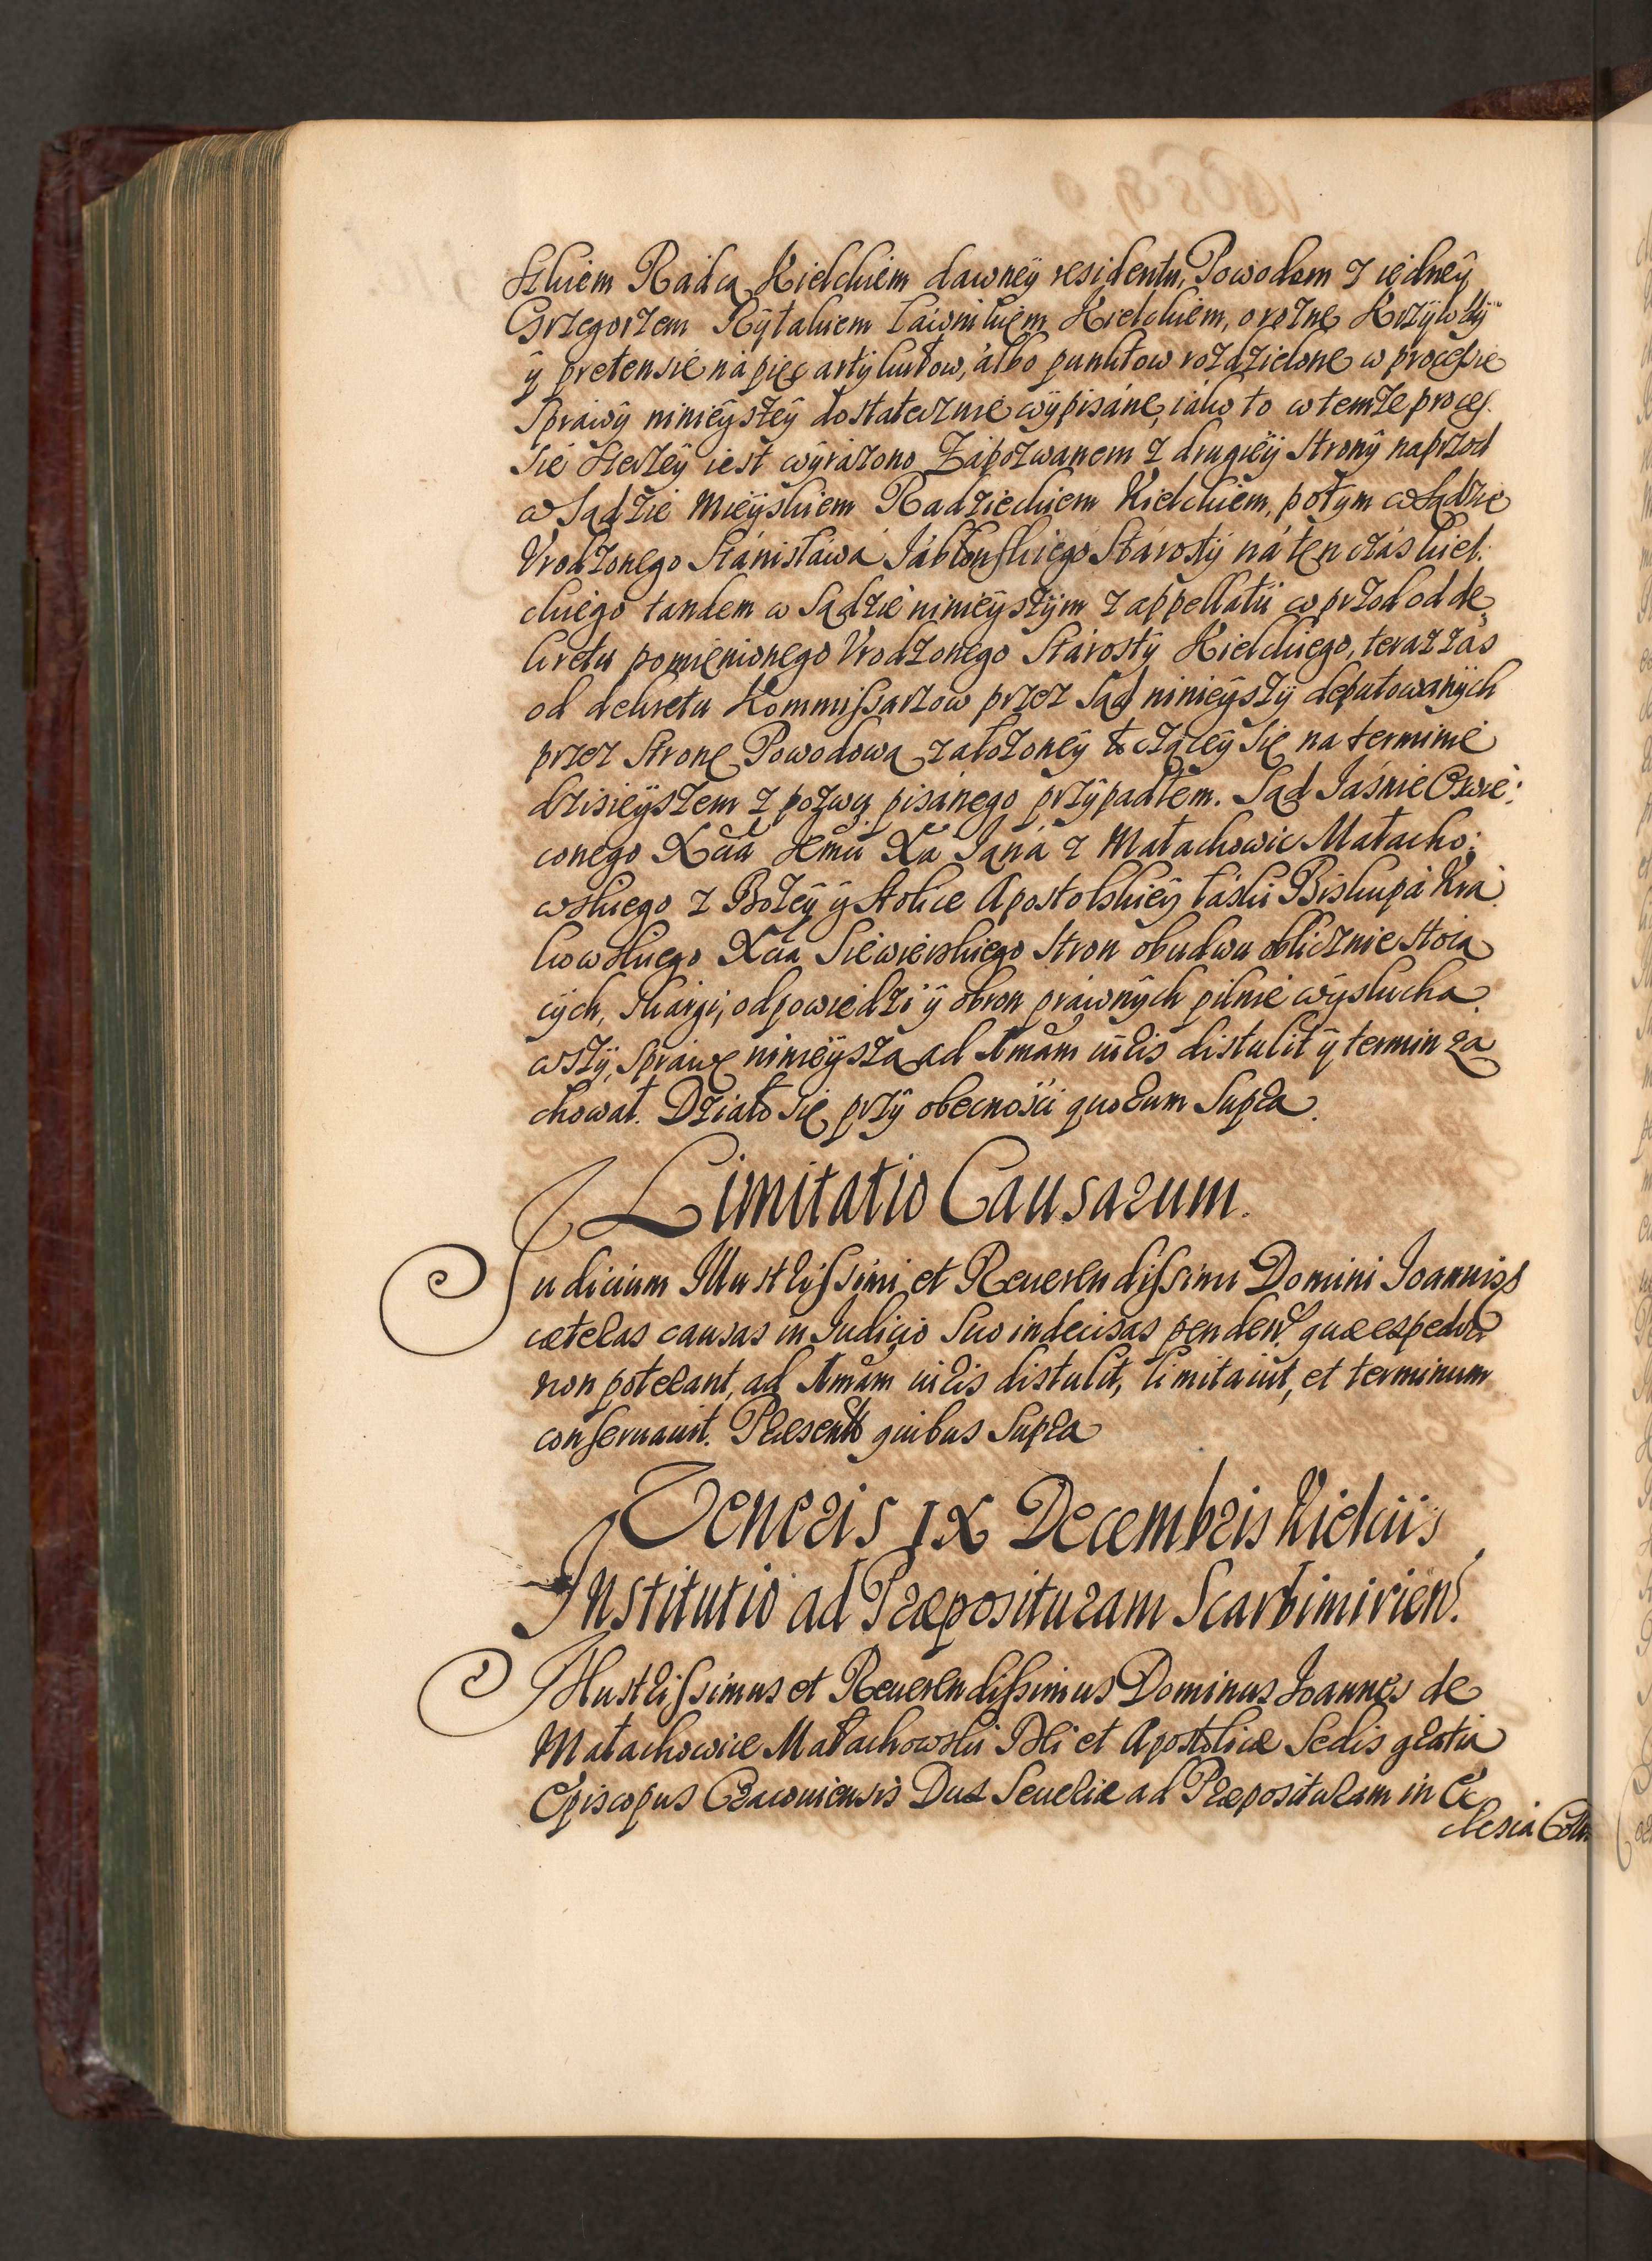 skiem Radcą Kielckiem dawney residentu, Powodem z iedney
Grzegorzem Rytakiem Ławnikiem Kielckiem, o rożne Krzywdy
y pretensie na pięc artykułow, albo punktow rozdzielone w processie
sprawy ninieyszey dostatecznie wypisane, iako to w temże proces:
sie szerzey iest wyrażono Zapozwanem z drugiey strony naprzod
w Sądzie Mieyskiem Radzieckiem Kielckiem, potym w Sądzie
Vrodzonego Stanisława Jabłonskiego Starosty na ten czas Kiel:
ckiego tandem w Sądzie ninieyszym z appellatii wprzod od de
kretu pomienionego Vrodzonego Starosty Kielckiego, teraz zas
od dekretu Kommissarzow przez Sąd ninieyszy deputowanych
przez stronę Powodową założoney toczącey się na terminie
dzisieyszem z pozwu pisanego przypadłem. Sąd Jaśnie Oświe:
conego Xcia Jemci Xa Jana z Małachowic Małacho:
wskiego z Bożey y Stolice Apostolskiey łaski Biskupa Kra
kowskiego Xcia Siewierskiego stron obudwu oblicznie stoią
cych, skargi, odpowiedzi y obron prawnych pilnie wysłucha
wszy, sprawę ninieyszą ad Amam iuris distulit y termin za
chował. Działo się przy obecnośći quorum supra.
Limitatio Causarum.
Iudicium Illustrissimi et Reuerendissimi Domini Ioannis
cæteras causas in Iudicio suo indecisas penden quæ expediri
non poterant, ad Amam iuris distulit, limitauit, et terminum
conseruauit. Præsentibus quibus supra
Veneris IX Decembris Kielciis
Institutio ad Præposituram Scarbimirien.
Illustrissimus et Reuerendissimus Dominus Ioannes de
Małachowice Małachowski Dei et Apostolicæ Sedis gratia
Episcopus Cracouiensis Dux Seueriæ ad Præposituram in Ec
clesia Coll